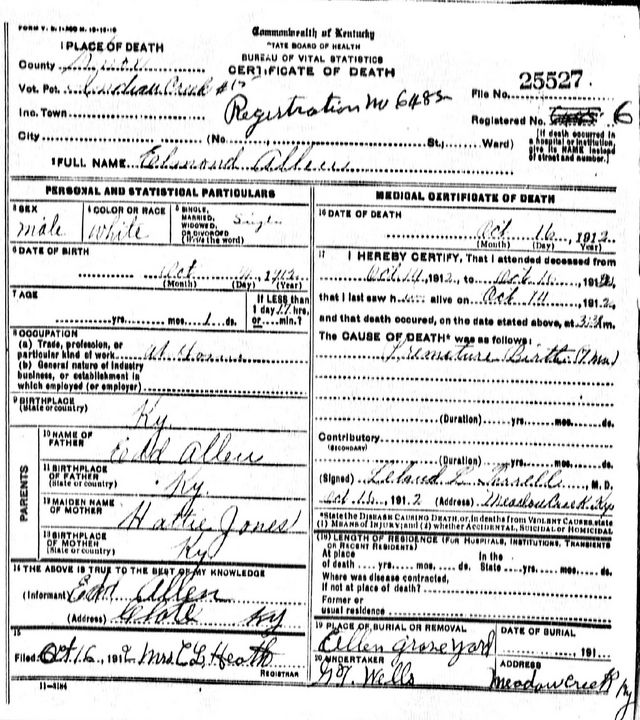 FORM V. S. 1-
Commonwealth of Kentucky
STATE BOARD OF HEALTH
BUREAU OF VITAL STATISTICS
CERTIFICATE OF DEATH
1 PLACE OF DEATH
County
Vot. Pct. Indian Creek #15
Inc. Town
City (No. St.; Ward)
Registration No 6485
File No. 25527
Registered No. 6
[If death occurred in a hospital or institution, give its NAME instead of street and number.]
2 FULL NAME Edmond Allen
PERSONAL AND STATISTICAL PARTICULARS
3 SEX
male
4 COLOR OR RACE
White
5 SINGLE, MARRIED, WIDOWED, OR DIVORCED (Write the word)
Single
6 DATE OF BIRTH
Oct 1912
(Month) (Day) (Year)
7 AGE
yrs. mos. 1 ds.
If LESS than 1 day, hrs. or min.?
8 OCCUPATION
(a) Trade, profession, or particular kind of work at Home
(b) General nature of industry business, or establishment in which employed (or employer)
9 BIRTHPLACE (State or country)
Ky.
PARENTS
10 NAME OF FATHER
Edd Allen
11 BIRTHPLACE OF FATHER (State or country)
Ky.
12 MAIDEN NAME OF MOTHER
Hattie Jones
13 BIRTHPLACE OF MOTHER (State or country)
Ky
14 THE ABOVE IS TRUE TO THE BEST OF MY KNOWLEDGE
(Informant) Edd Allen
(Address) Ky
15
Filed Oct 16, 1912 Mrs. C L Heath
REGISTRAR
11-3184
MEDICAL CERTIFICATE OF DEATH
16 DATE OF DEATH
Oct 16, 1912
(Month) (Day) (Year)
17 I HEREBY CERTIFY, That I attended deceased from
Oct 14, 1912, to Oct 16, 1912,
that I last saw h alive on Oct 14, 1912,
and that death occured, on the date stated above, at m.
The CAUSE OF DEATH* was as follows:
Premature Birth (7 mo)
(Duration) yrs. mos. ds.
Contributory (SECONDARY)
(Duration) yrs. mos. ds.
(Signed) Leland L. M.D.
Oct 16, 1912 (Address) Meadow Creek, Ky
*State the DISEASE CAUSING DEATH, or, in deaths from VIOLENT CAUSES, state (1) MEANS OF INJURY; and (2) whether ACCIDENTAL, SUICIDAL or HOMICIDAL
(18) LENGTH OF RESIDENCE (FOR HOSPITALS, INSTITUTIONS, TRANSIENTS OR RECENT RESIDENTS)
At place of death yrs. mos. ds. In the State yrs. mos. ds.
Where was disease contracted, if not at place of death?
Former or usual residence
19 PLACE OF BURIAL OR REMOVAL
Ellen Grove Yard
DATE OF BURIAL
191
20 UNDERTAKER
Wells
ADDRESS
Meadow Creek Ky